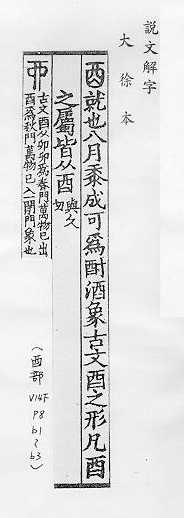 説文解字
大徐本
酉就也八月黍成可爲酎酒象古文酉之形凡酉
之屬皆从酉與久切
丣古文酉从卯卯爲春門萬物已出
酉爲秋門萬物已入一閉門象也
(酉部 V14下 P8 b1~b3)